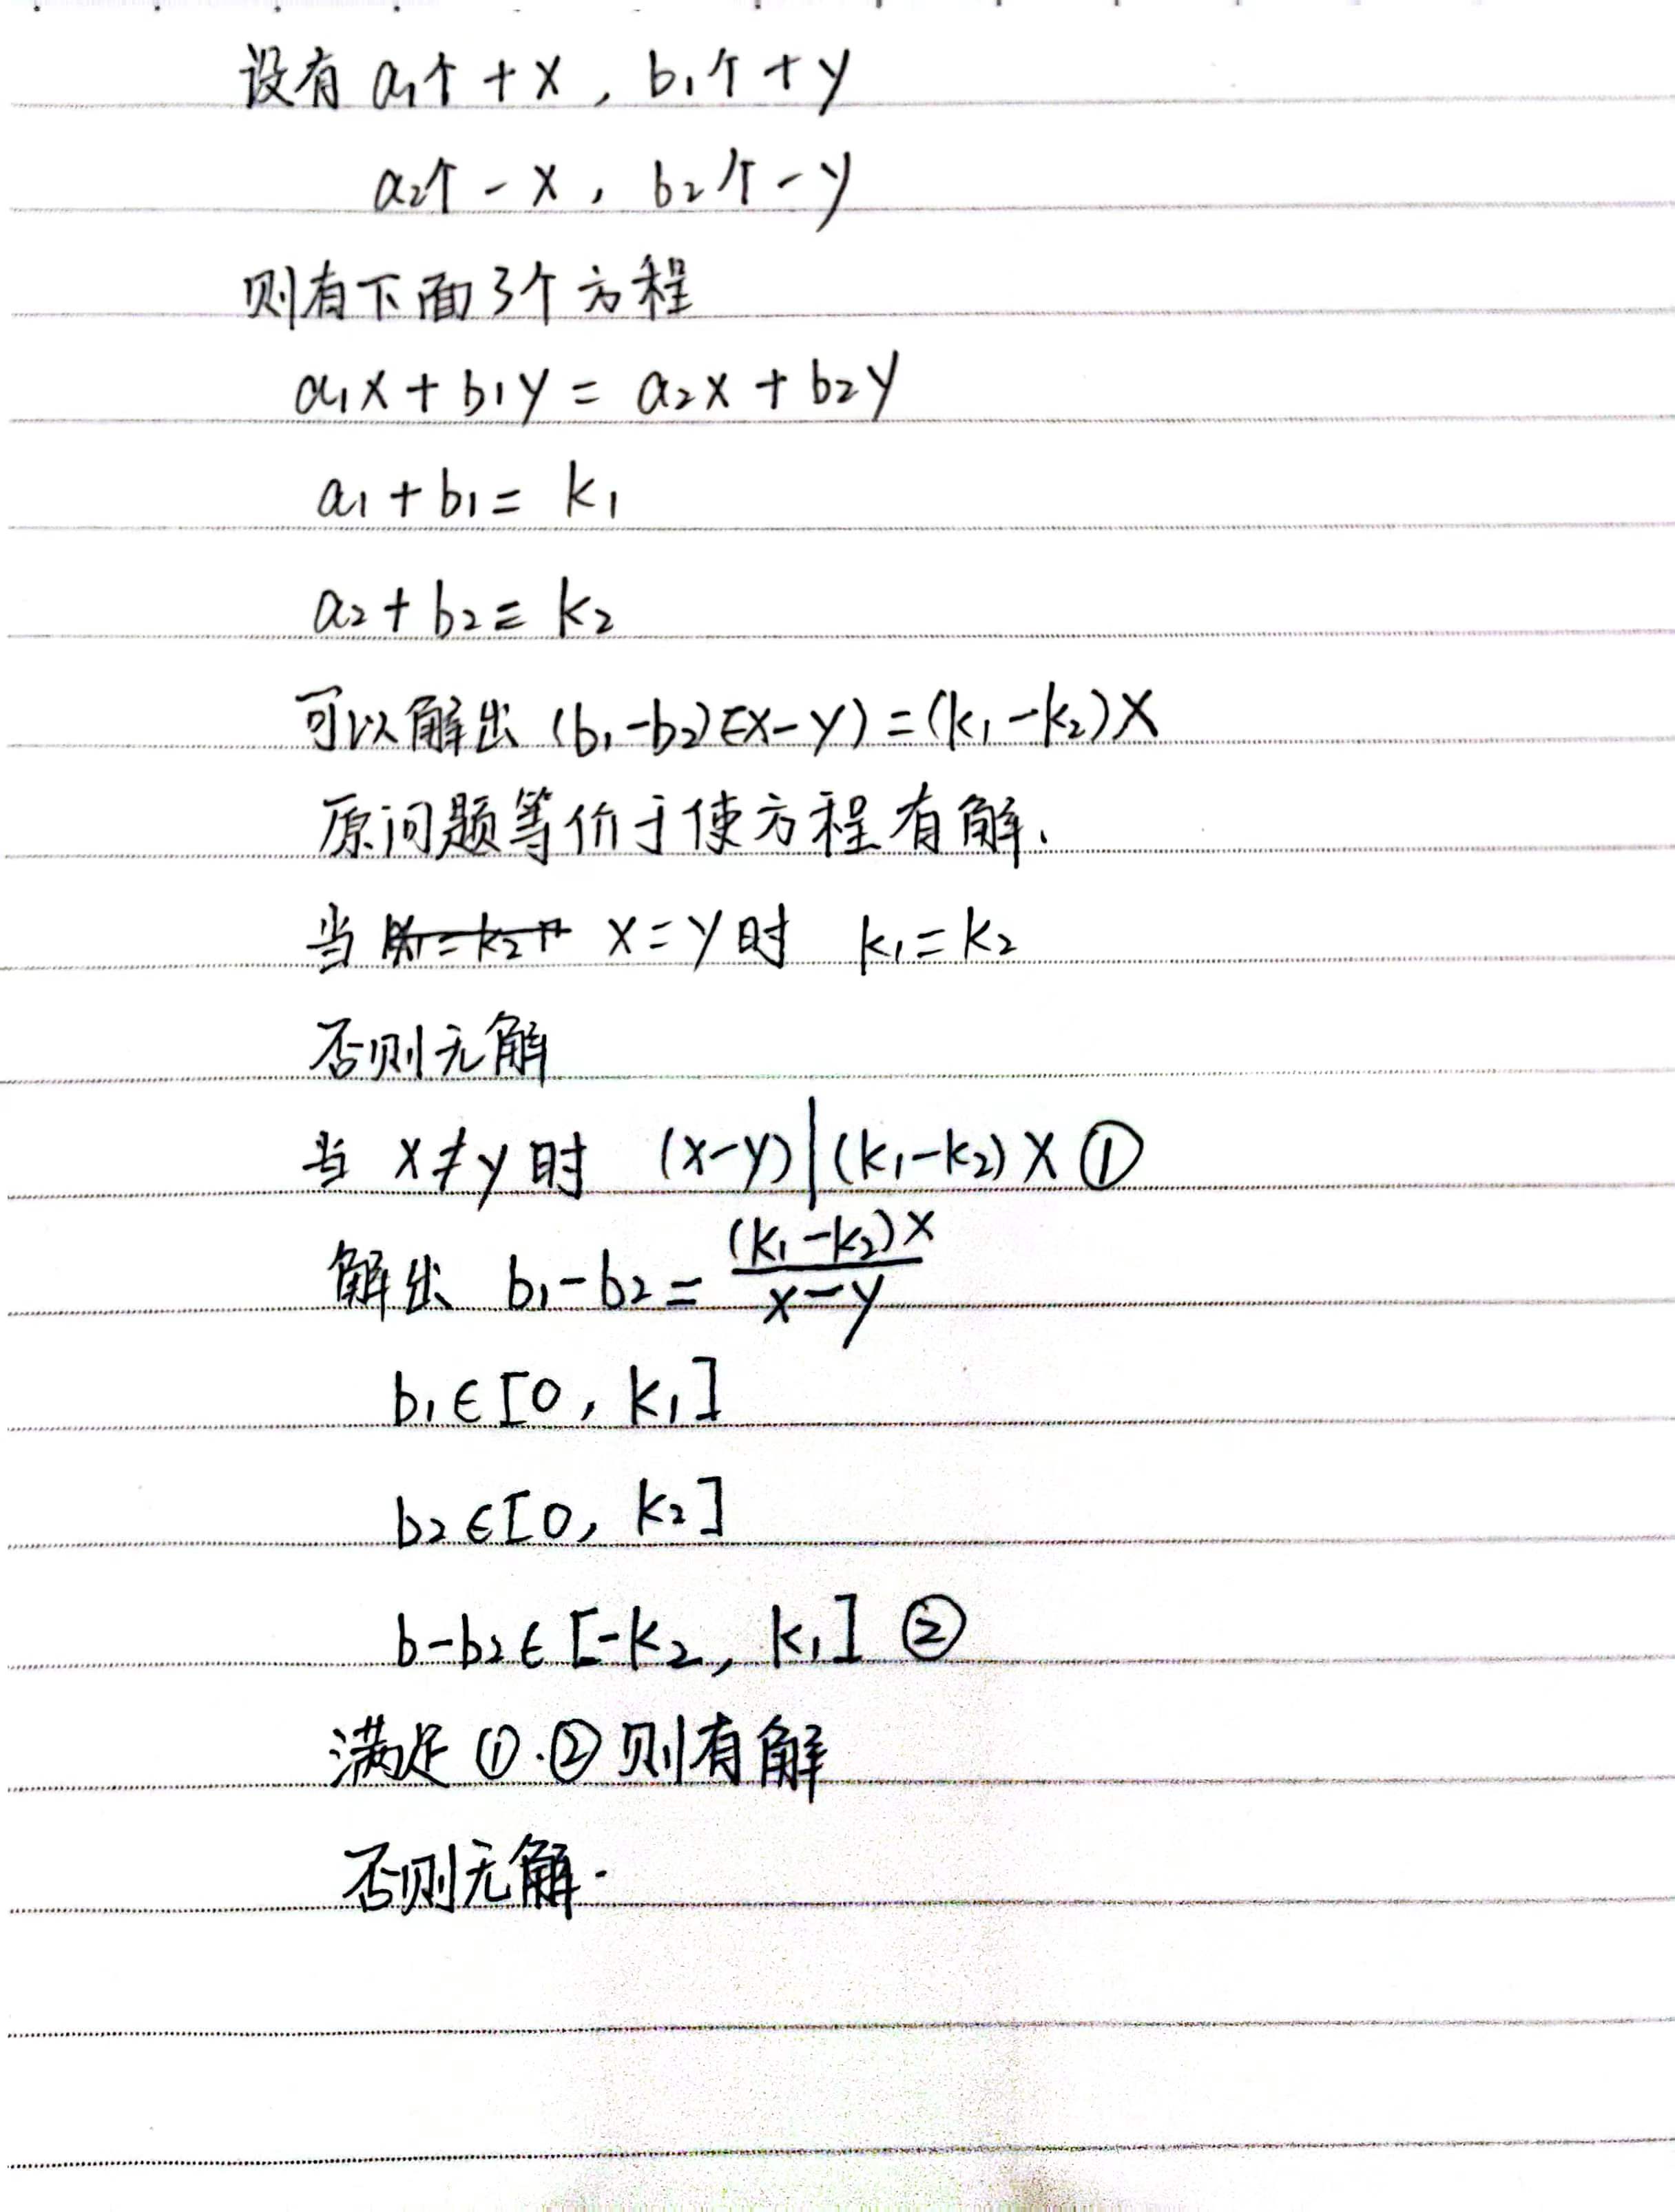 设有 a₁个 +x , b₁个 +y
a₂个 -x , b₂个 -y
则有下面3个方程
a₁x + b₁y = a₂x + b₂y
a₁ + b₁ = k₁
a₂ + b₂ = k₂
可以解出 (b₁-b₂)(x-y) = (k₁-k₂)x
原问题等价于使方程有解.
当 x=y时 k₁=k₂
否则无解
当 x≠y时 (x-y)|(k₁-k₂)x ①
解出 b₁-b₂ = (k₁-k₂)x / x-y
b₁∈[0, k₁]
b₂∈[0, k₂]
b-b₂∈[-k₂, k₁] ②
满足①.②则有解
否则无解.